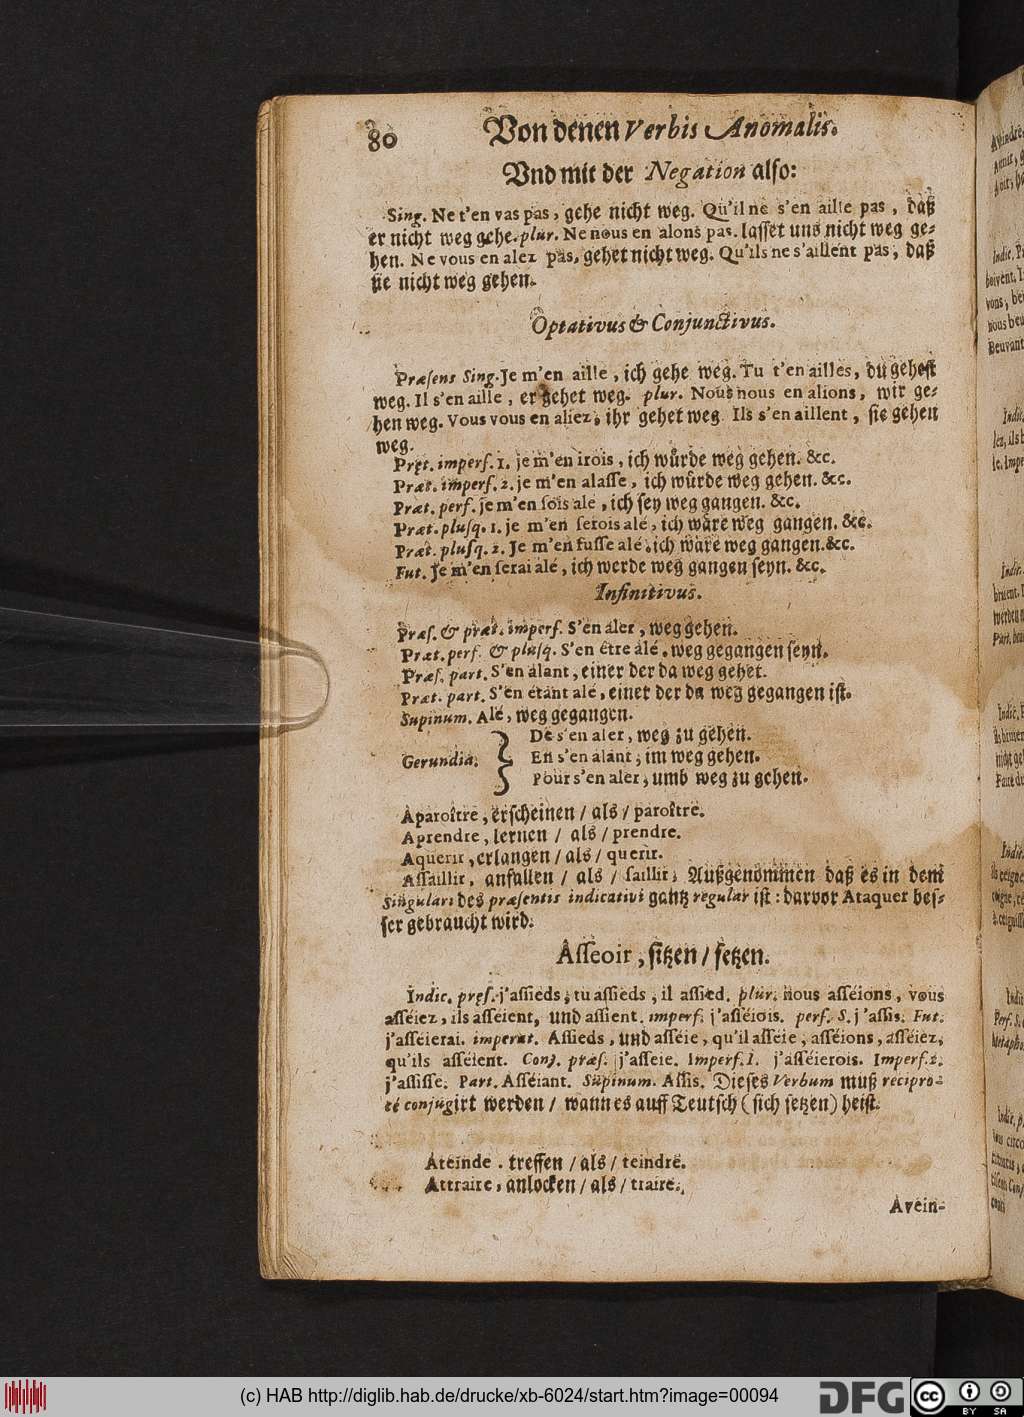 80 Von denen Verbis Anomalis.
Vnd mit der Negation also:
Sing. Ne t'en vas pas, gehe nicht weg. Qu'il ne s'en aille pas, daß
er nicht weg gehe. plur. Ne nous en alons pas. lasset uns nicht weg ge-
hen. Ne vous en alez pas, gehet nicht weg. Qu'ils ne s'aillent pas, daß
sie nicht weg gehen.
Optativus & Conjunctivus.
Præsens Sing. Je m'en aille, ich gehe weg. Tu t'en ailles, du gehest
weg. Il s'en aille, er gehet weg. plur. Nous nous en alions, wir ge-
hen weg. Vous vous en aliez, ihr gehet weg. Ils s'en aillent, sie gehen
weg.
Præt. imperf. 1. je m'en irois, ich würde weg gehen. &c.
Præt. imperf. 2. je m'en alasse, ich würde weg gehen. &c.
Præt. perf. je m'en sois alé, ich sey weg gangen. &c.
Præt. plusq. 1. je m'en serois alé, ich wäre weg gangen. &c.
Præt. plusq. 2. Je m'en fusse alé, ich wäre weg gangen. &c.
Fut. Je m'en serai alé, ich werde weg gangen seyn. &c.
Infinitivus.
Præs. & præt. imperf. S'en aler, weg gehen.
Præt. perf. & plusq. S'en être alé, weg gegangen seyn.
Præs. part. S'en alant, einer der da weg gehet.
Præt. part. S'en étant alé, einer der da weg gegangen ist.
Supinum. Alé, weg gegangen.
De s'en aler, weg zu gehen.
Gerundia. En s'en alant, im weg gehen.
Pour s'en aler, umb weg zu gehen.
Aparoître, erscheinen / als / paroître.
Aprendre, lernen / als / prendre.
Aquerir, erlangen / als / querir.
Assaillir, anfallen / als / saillir, Außgenommen daß es in dem
Singulari des præsentis indicativi gantz regular ist: darvor Ataquer bes-
ser gebraucht wird.
Asseoir, sitzen / setzen.
Indic. præs. j'assieds, tu assieds, il assied. plur. nous asséions, vous
asséiez, ils asséient, und assient. imperf. j'asséiois. perf. S. j'assis. Fut.
j'asséierai. imperat. Assieds, und asséie, qu'il asseie, asséions, asséiez,
qu'ils asséient. Conj. præs. j'asseie. Imperf. 1. j'asséierois. Imperf. 2.
j'assisse. Part. Asséiant. Supinum. Assis. Dieses Verbum muß recipro-
cé conjugirt werden / wann es auff Teutsch (sich setzen) heist.
Ateinde. treffen / als / teindre.
Attraire, anlocken / als / traire.
Avein-
(c) HAB http://diglib.hab.de/drucke/xb-6024/start.htm?image=00094
DFG
cc BY SA